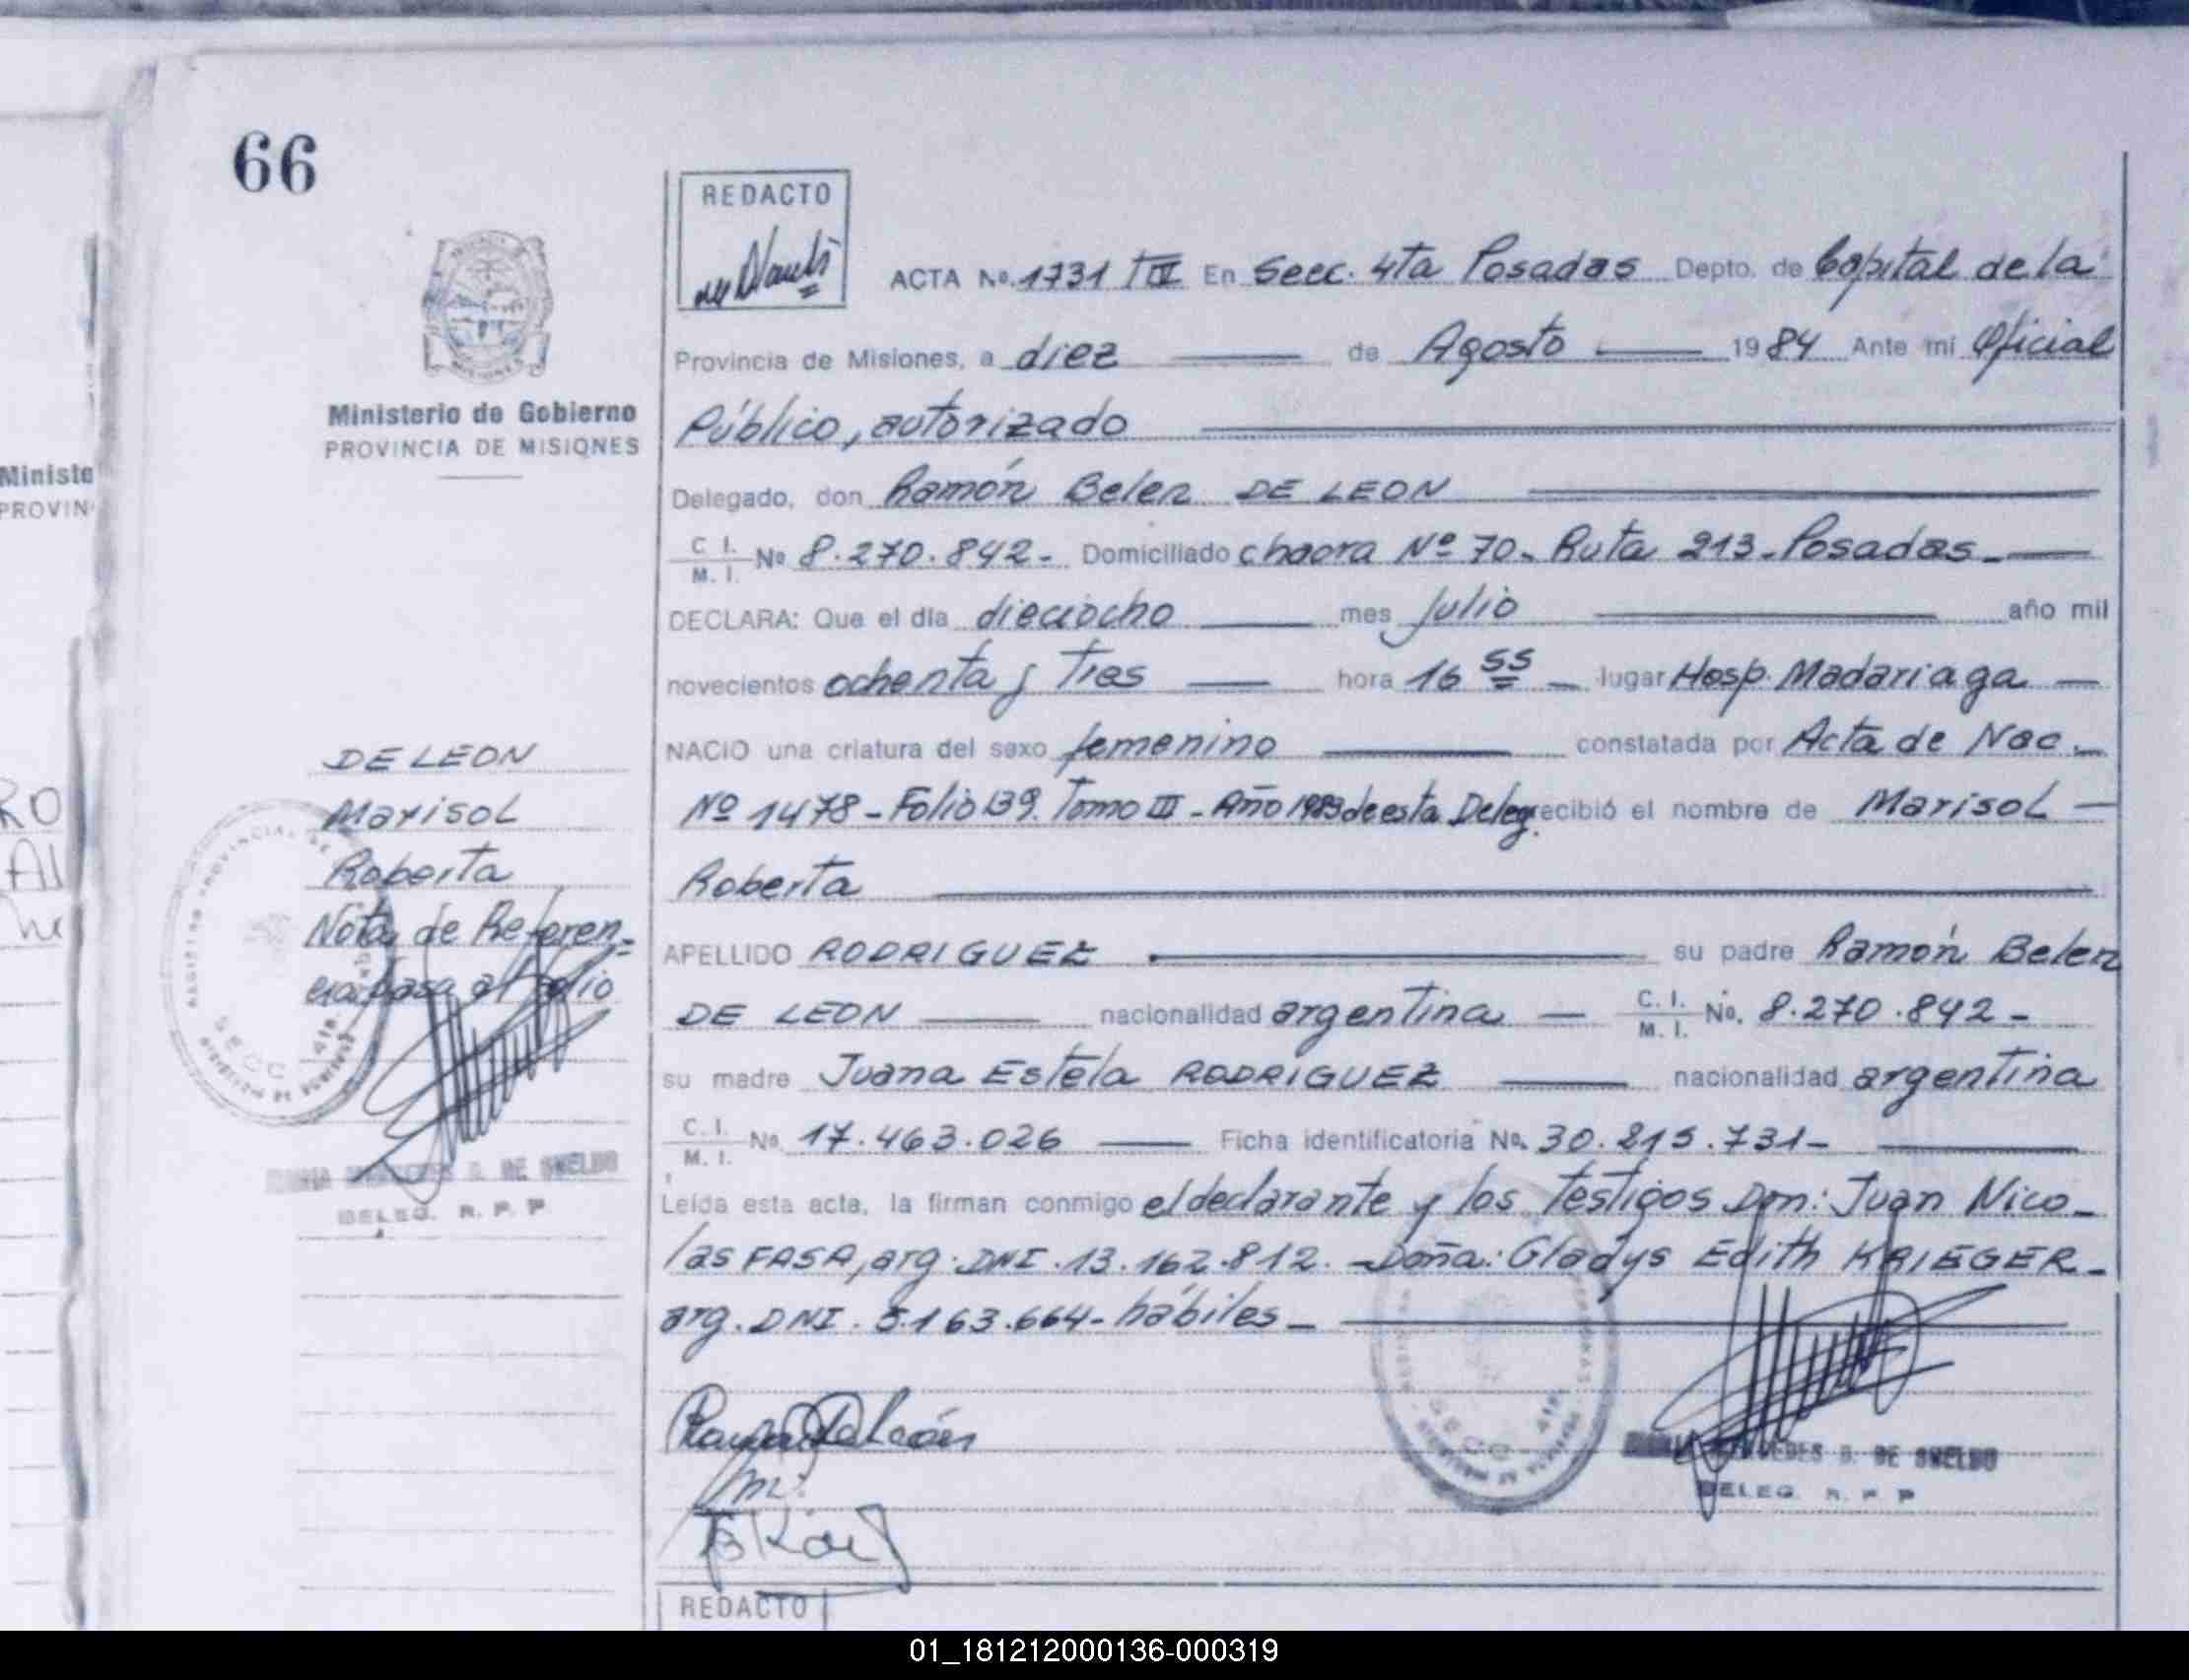 66
REDACTO
ACTA No. 1731 En Secc. 4ta Posadas Depto. de Capital de la
Provincia de Misiones, a diez de Agosto 1984 Ante mi Oficial
Público, autorizado
Delegado, don Ramón Belen DE LEON
C. I. M. I. No 8.270.842- Domiciliado chacra Nº 70- Ruta 213-Posadas-
DECLARA: Que el día dieciocho mes Julio año mil
novecientos ochenta y Tres hora 16 55 lugar Hosp. Madariaga
NACIO una criatura del sexo femenino constatada por Acta de Nac.
Nº 1478-Folio 139. Tomo III-Año 1983 de esta Deleg. recibió el nombre de Marisol
Roberta
APELLIDO RODRIGUEZ su padre Ramón Belen
DE LEON nacionalidad argentina C. I. M. I. No. 8.270.842-
su madre Juana Estela RODRIGUEZ nacionalidad argentina
C. I. M. I. No. 17.463.026 Ficha identificatoria No. 30.215.731-
Leída esta acta, la firman conmigo el declarante y los Testigos Don: Juan Nico-
las FASA, arg. DNI.13.162.812.-Doña: Gladys Edith KRIEGER-
arg. DNI. 5.163.664-hábiles-
DE SWELDO
DELEG. R. P. P
REDACTO
Ministerio de Gobierno
PROVINCIA DE MISIONES
DE LEON
Marisol
Roberta
Nota de Referen-
cia pasa al Folio
DE SWELDO
DELEG. R. P. P
SECC 4ta
Ministe
PROVIN
01_181212000136-000319